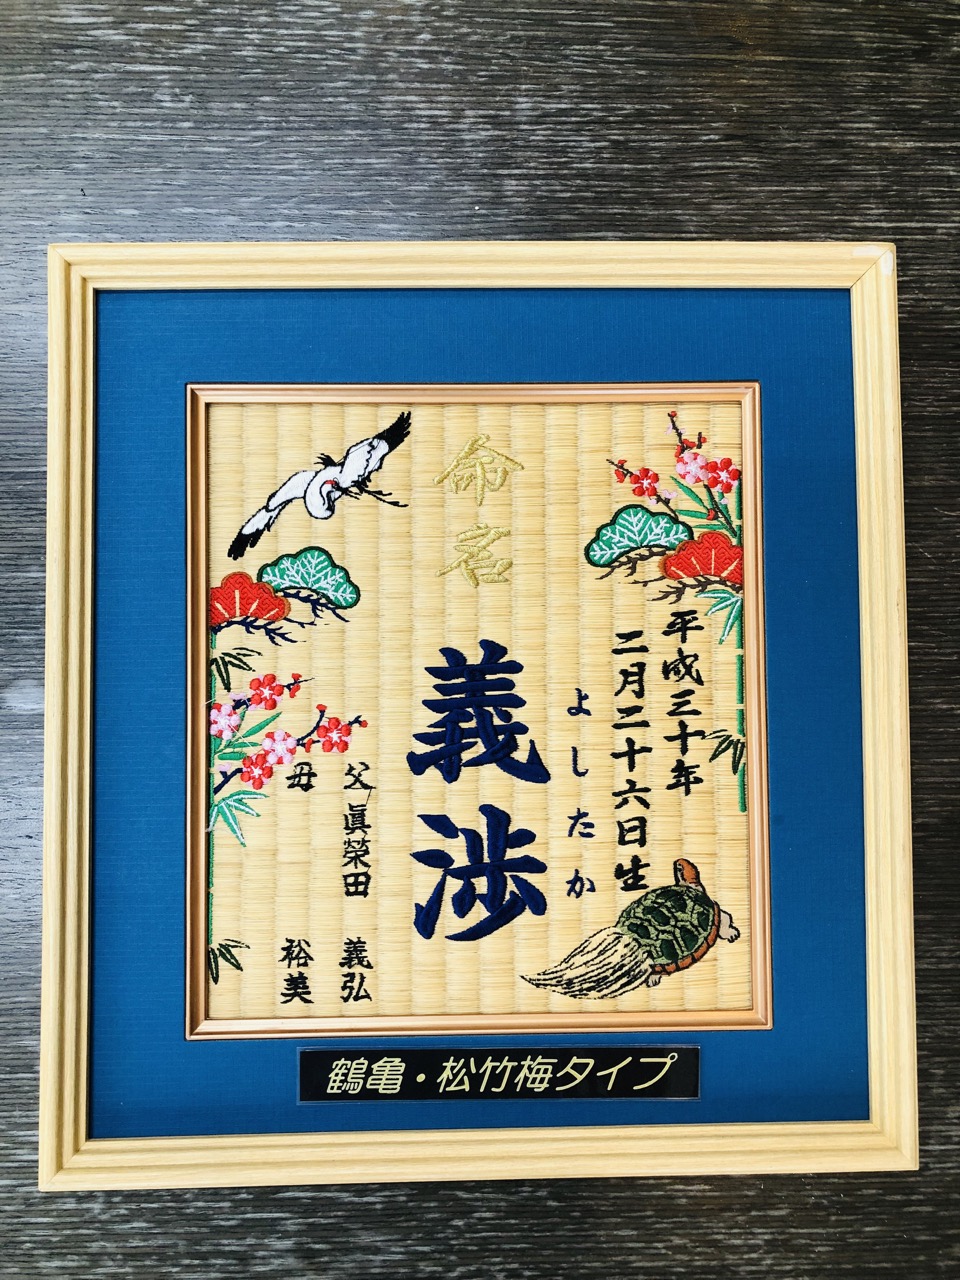 命名
平成三十年
二月二十六日生
よしたか
義渉
父 眞榮田 義弘
母 裕美
鶴亀・松竹梅タイプ